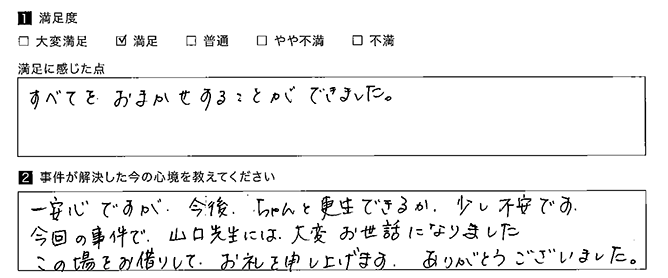 1 満足度
□ 大変満足 ☑ 満足 □ 普通 □ やや不満 □ 不満
満足に感じた点
すべてを おまかせすることが できました。
2 事件が解決した今の心境を教えてください
一安心ですが、今後、ちゃんと更生できるか、少し不安です。
今回の事件で、山口先生には、大変 お世話になりました
この場をお借りして、お礼を申し上げます、ありがとうございました。